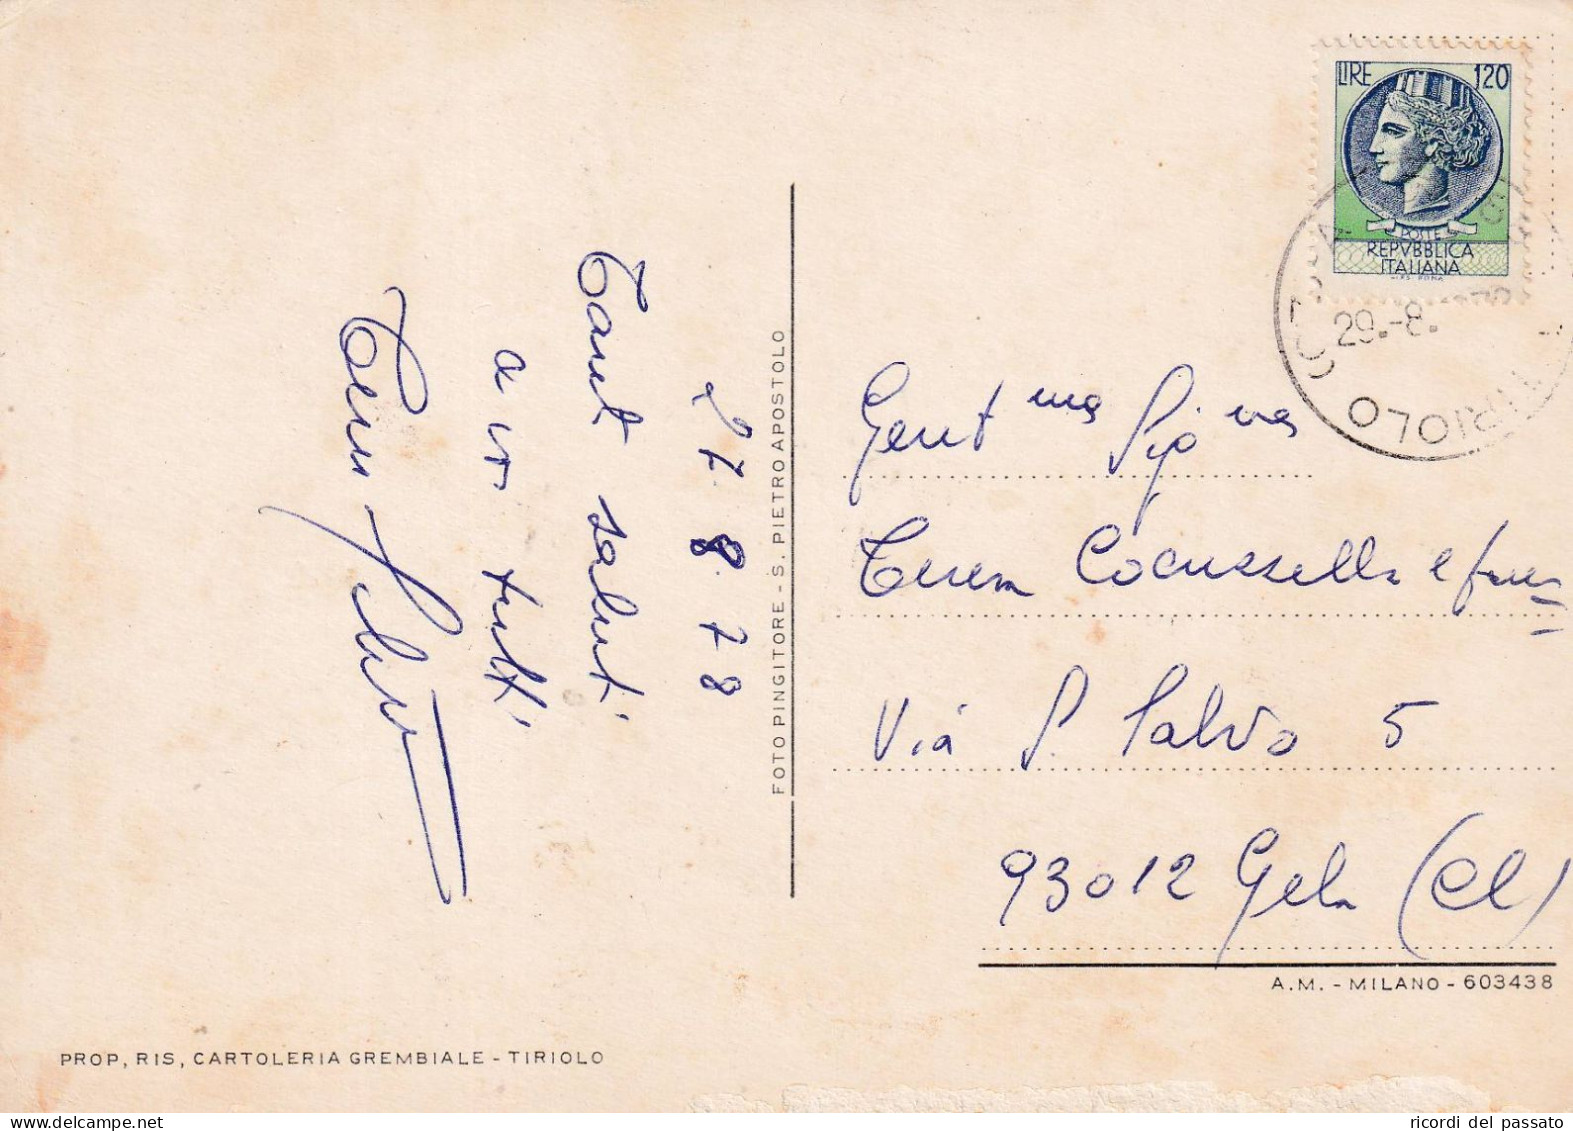 27.8.78
Tanti saluti
a voi tutti
FOTO PINGITORE - S. PIETRO APOSTOLO
PROP, RIS, CARTOLERIA GREMBIALE - TIRIOLO
LIRE 120
POSTE
REPVBBLICA
ITALIANA
29.-8.
TIRIOLO
Gent ma Sig na
Teresa Cocuzzella e fam
Via S. Salvo 5
93012 Gela (Cl)
A.M. - MILANO - 603438
ricordi del passato